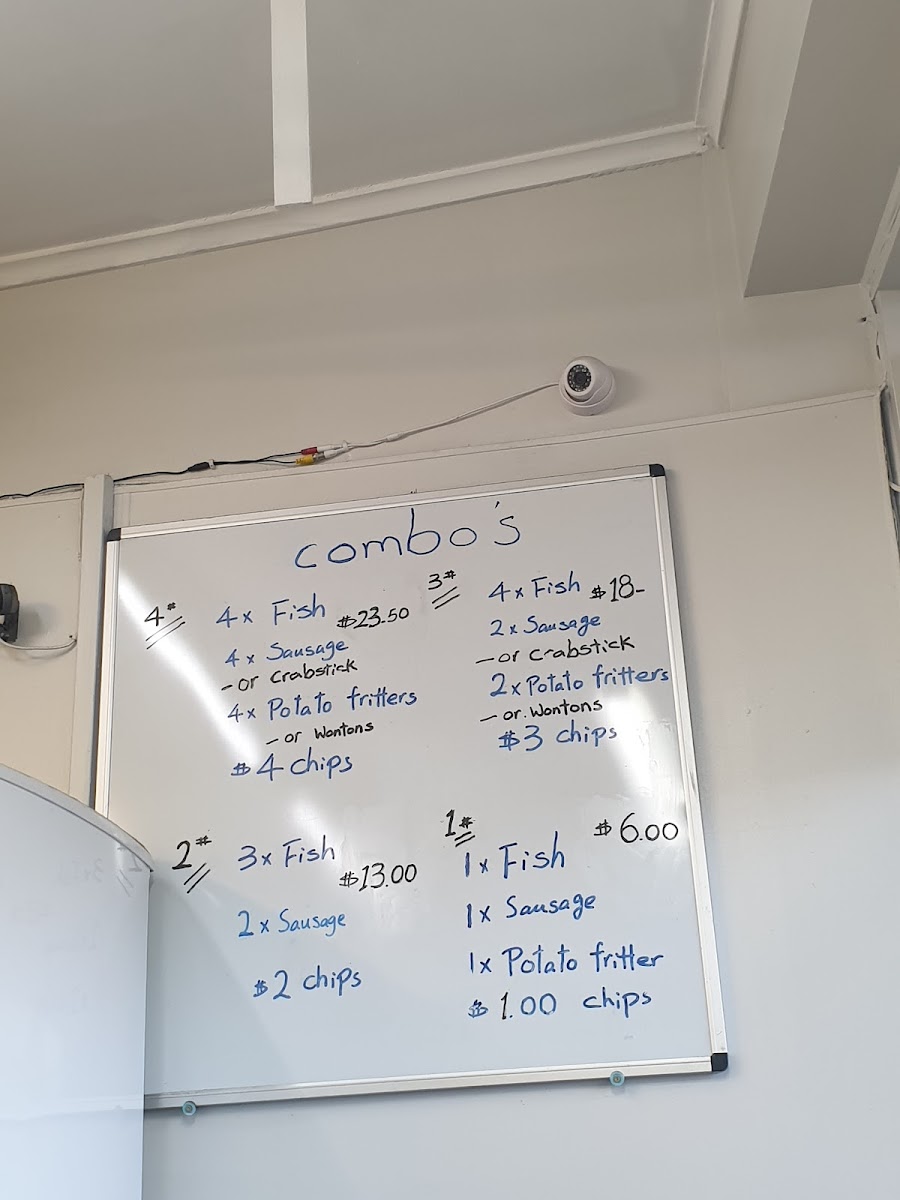 combo's
4#
4x Fish $23.50
4x Sausage
- or Crabstick
4x Potato fritters
- or Wontons
$4 chips
3#
4x Fish $18-
2x Sausage
- or crabstick
2x Potato fritters
- or. Wontons
$3 chips
2#
3x Fish
$13.00
2x Sausage
$2 chips
1#
$6.00
1x Fish
1x Sausage
1x Potato fritter
$1.00 chips